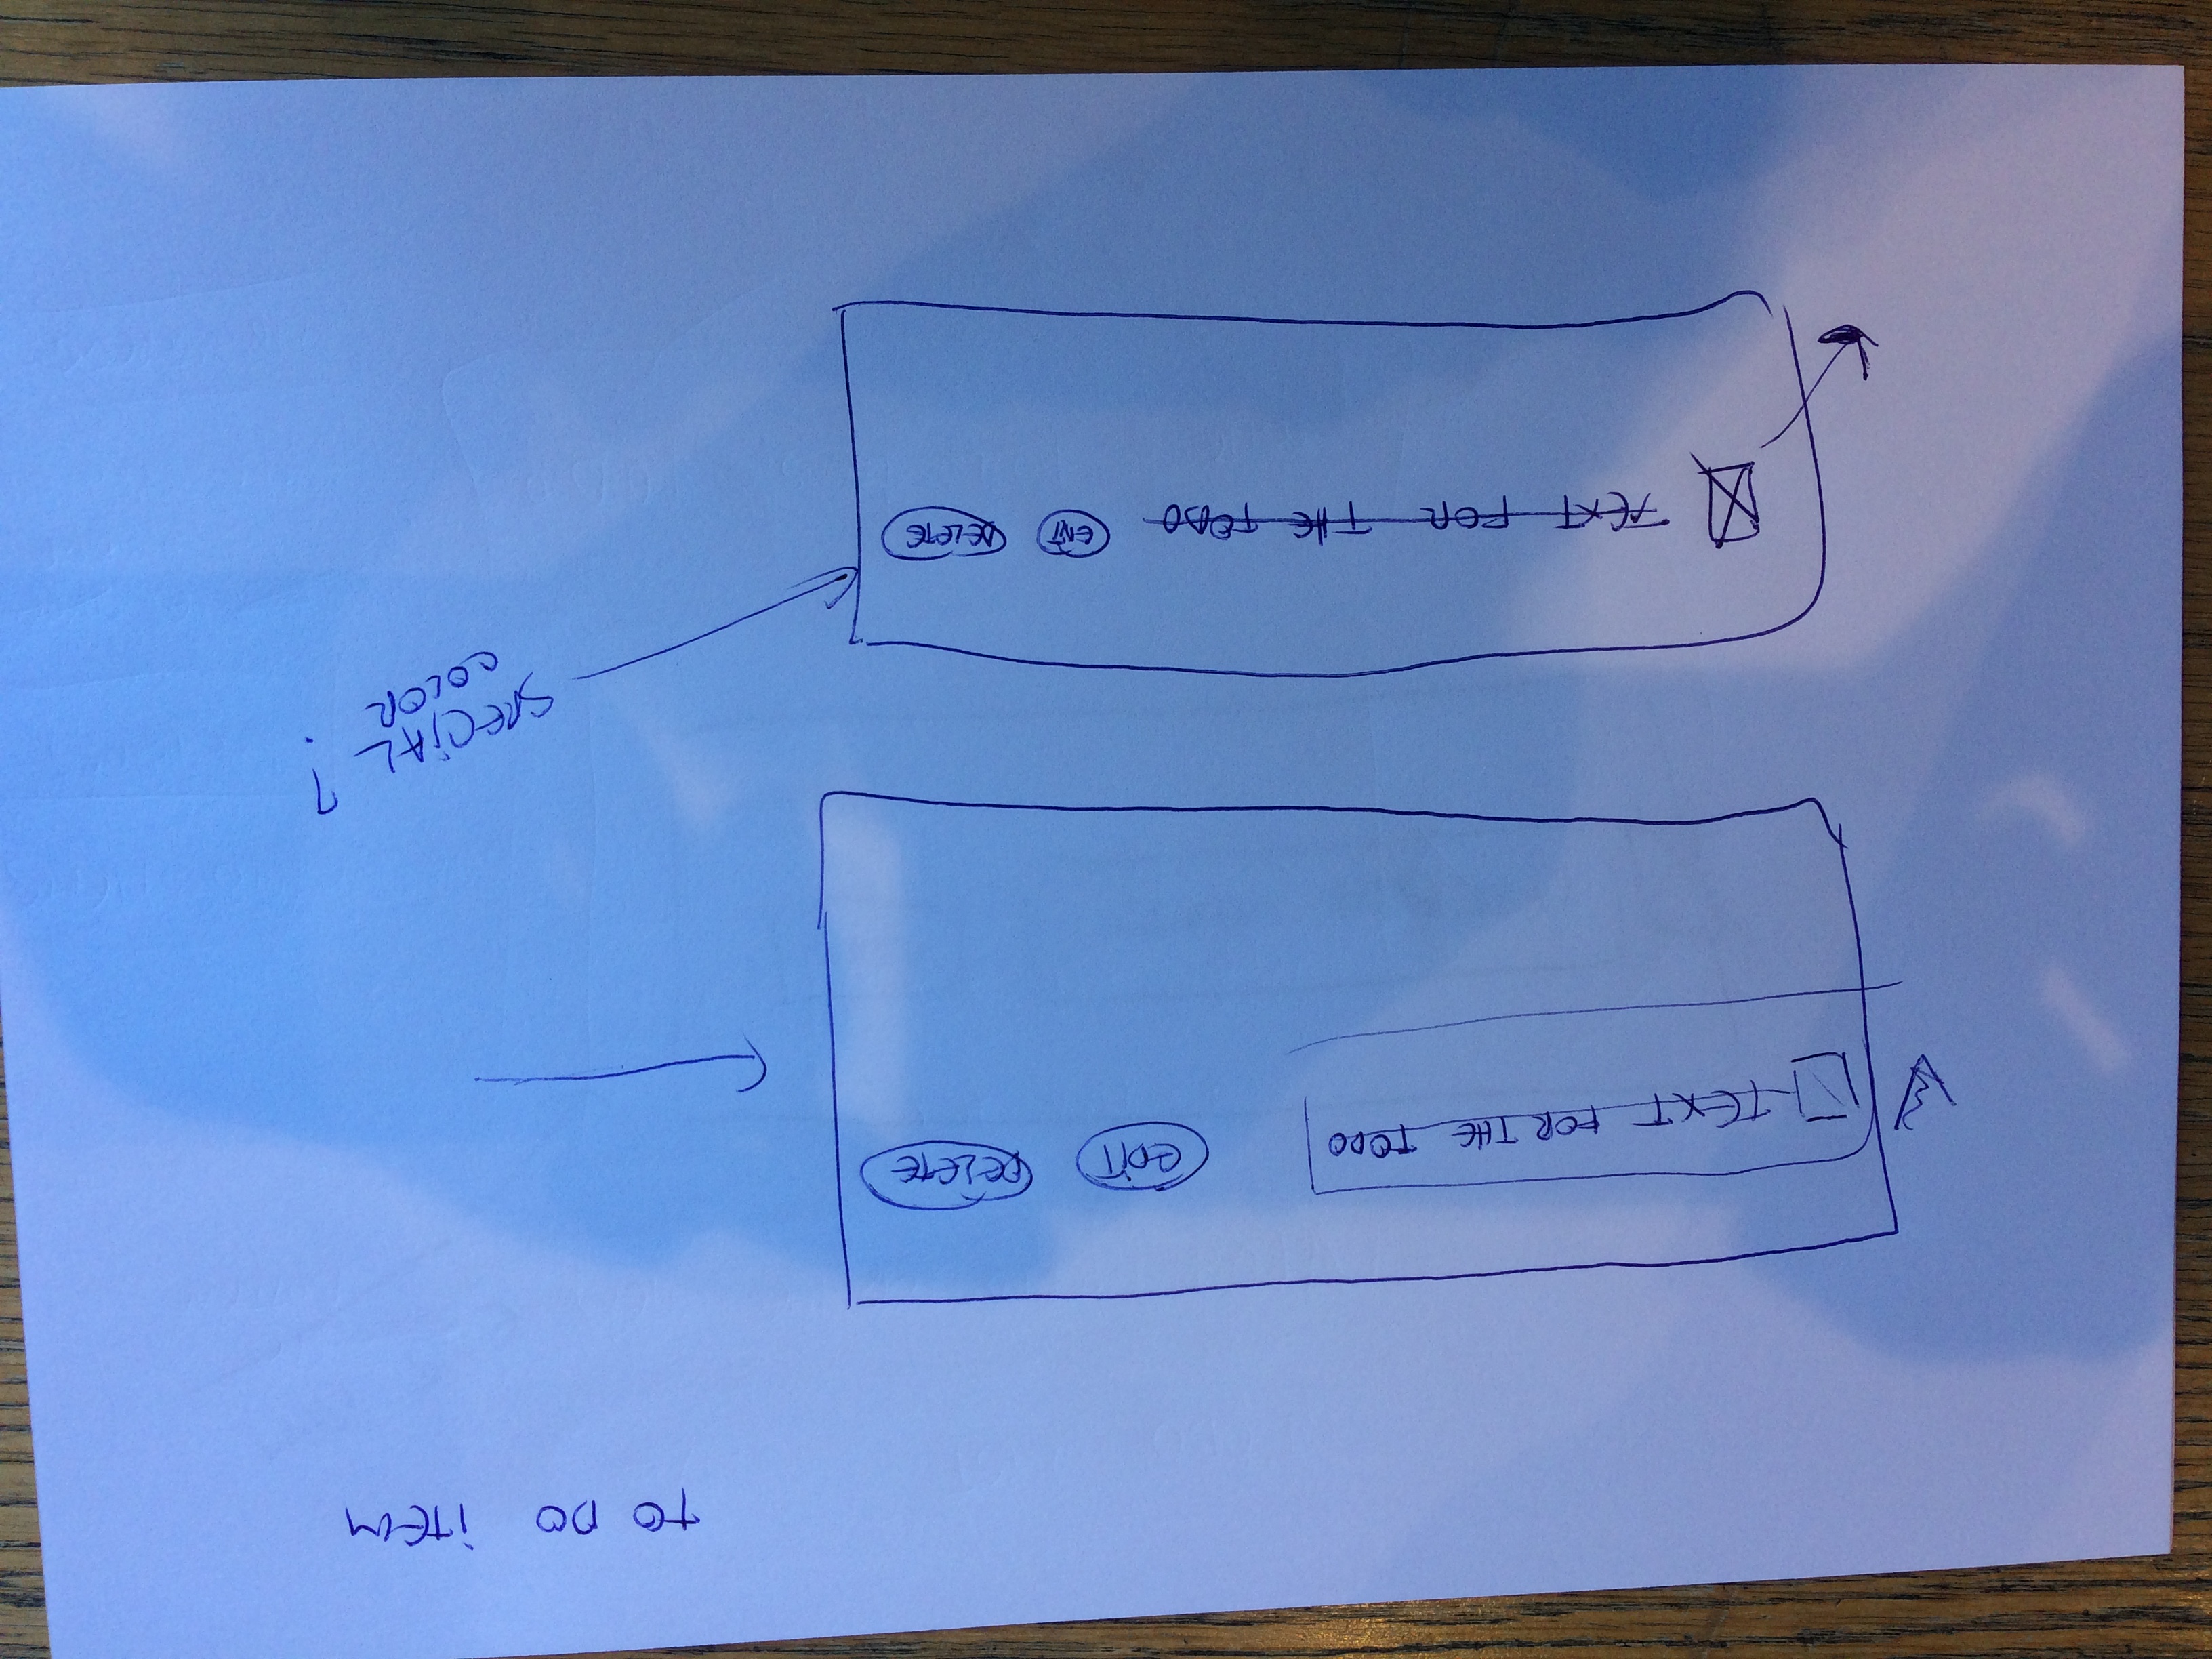 TO DO ITEM
TEXT FOR THE TODO
EDIT
DELETE
SPECIAL
COLOR ?
TEXT FOR THE TODO
DELETE